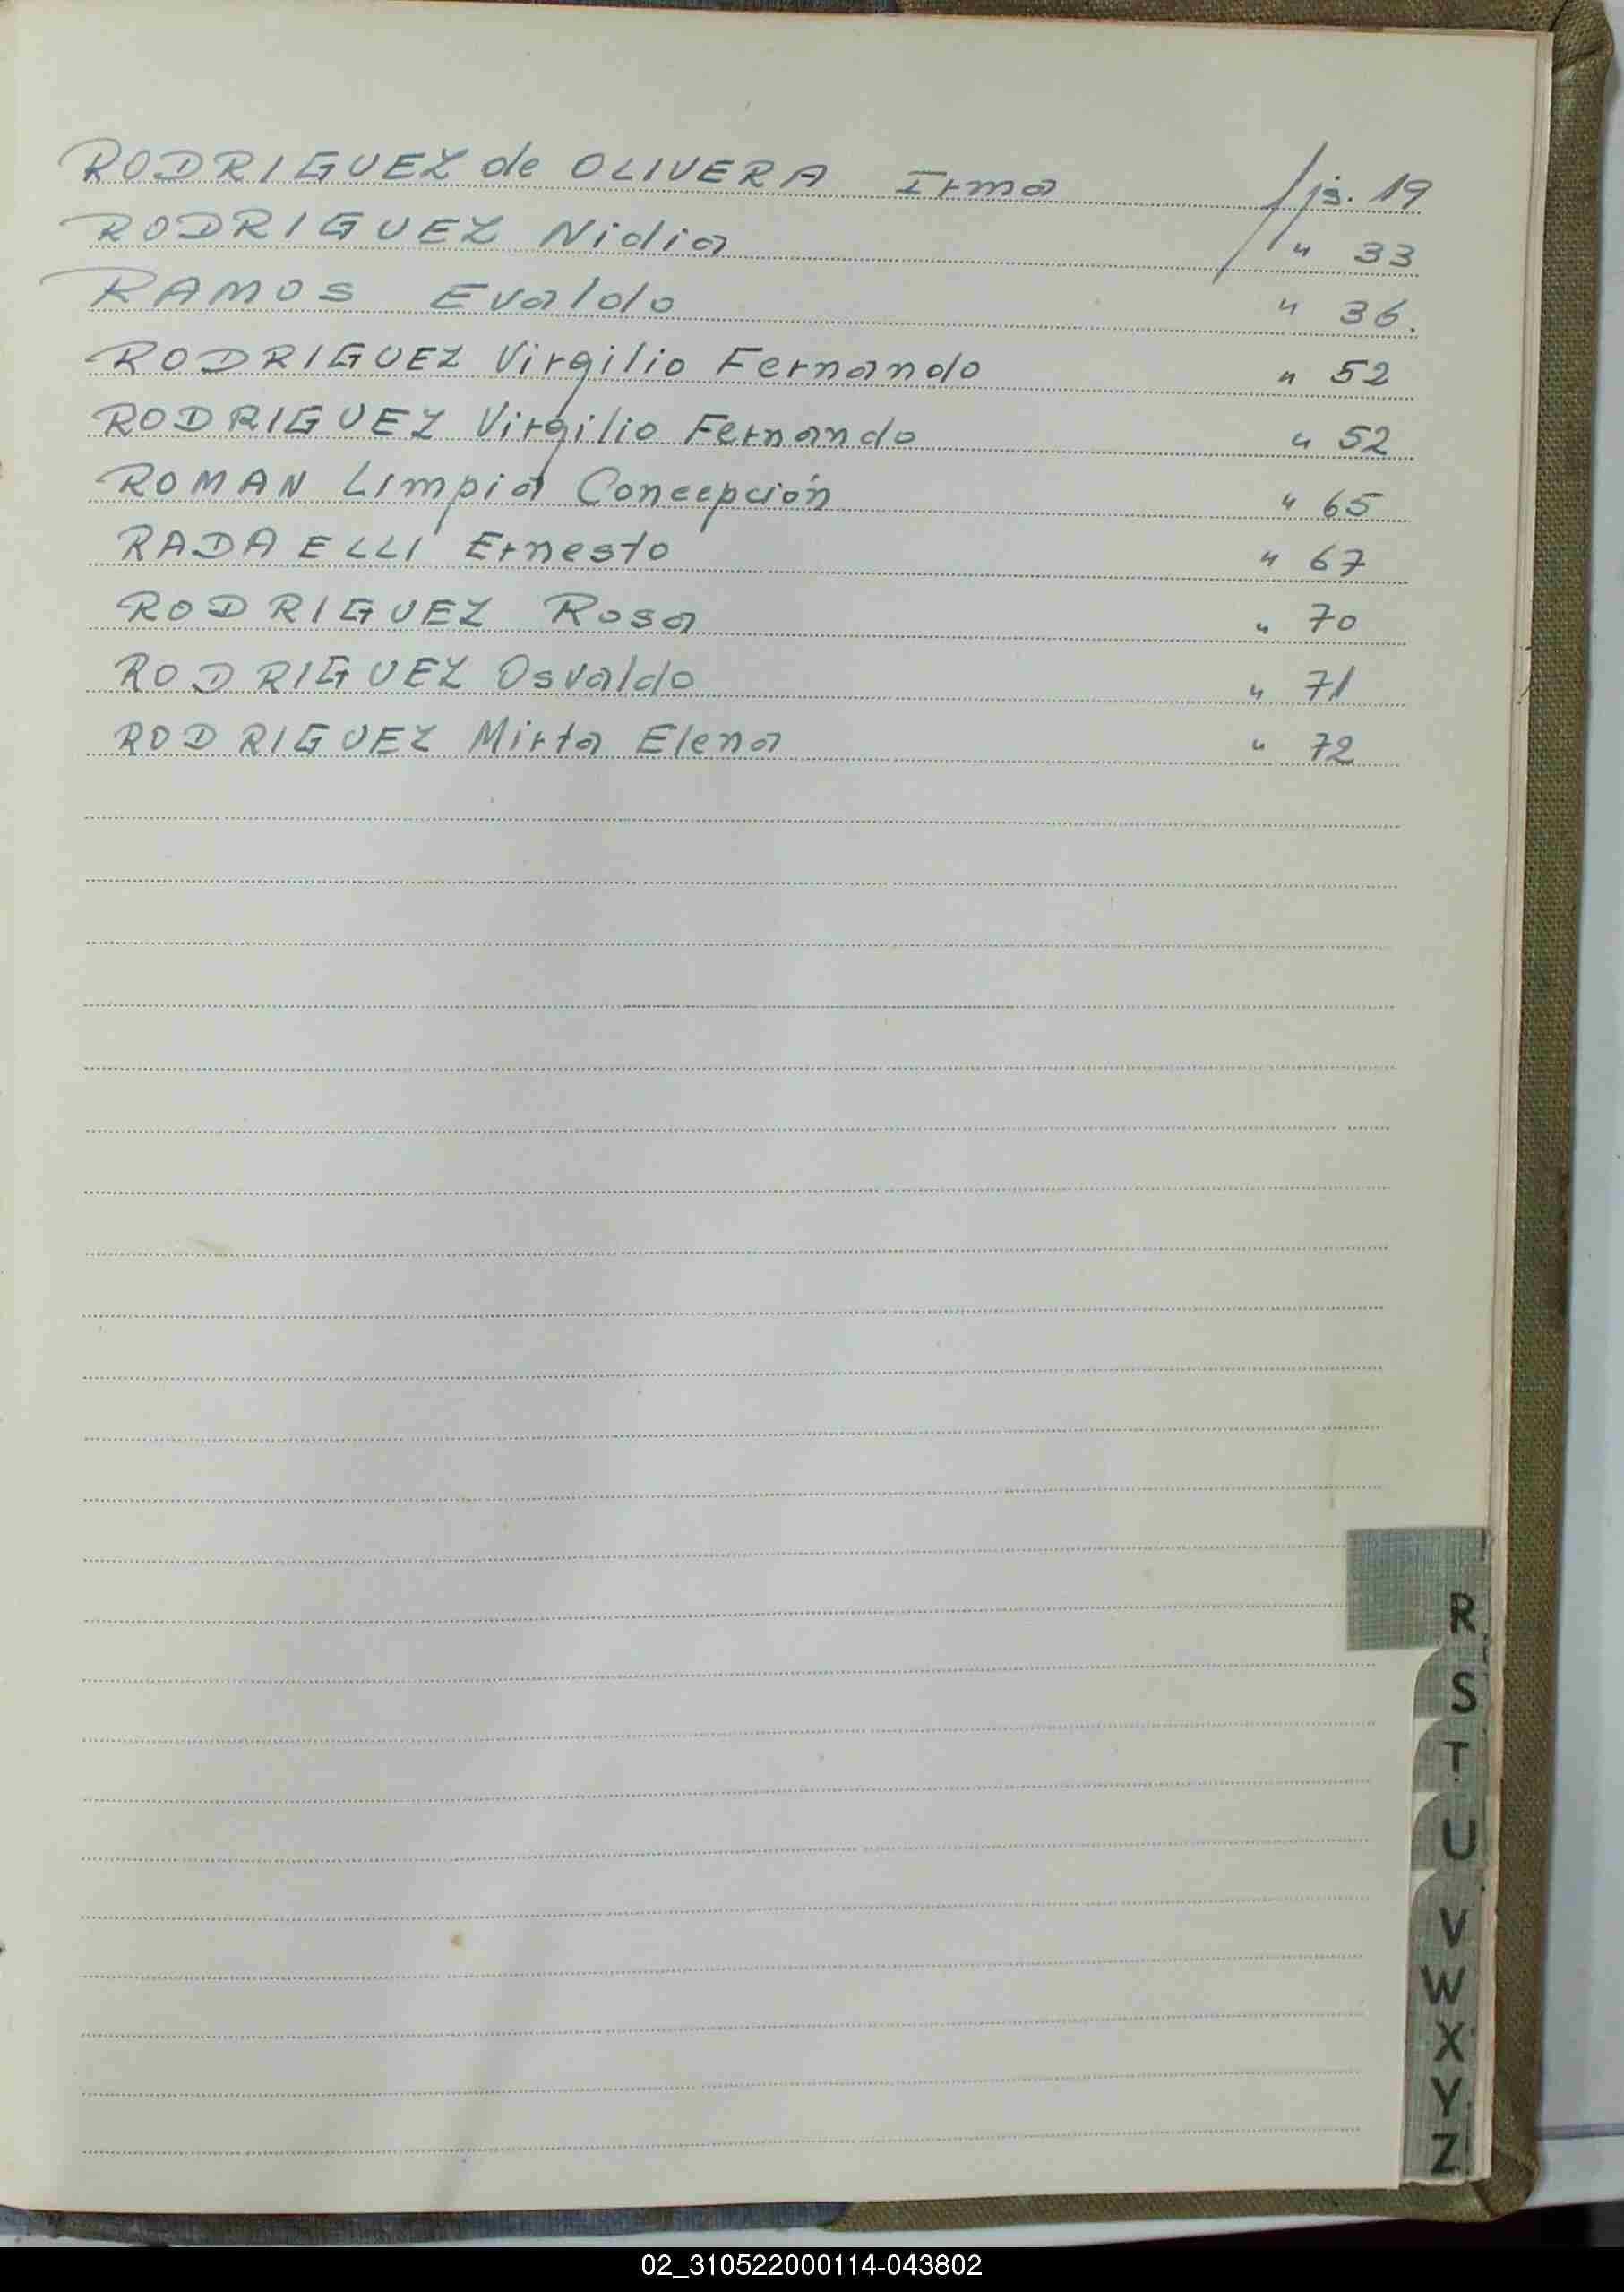 RODRIGUEZ de OLIVERA Irma fjs. 19
RODRIGUEZ Nidia " 33
RAMOS Evaldo " 36.
RODRIGUEZ Virgilio Fernando " 52
RODRIGUEZ Virgilio Fernando " 52
ROMAN Limpia Concepción " 65
RADAELLI Ernesto " 67
RODRIGUEZ Rosa " 70
RODRIGUEZ Osvaldo " 71
RODRIGUEZ Mirta Elena " 72
R
S
T
U
V
W
X
Y
Z
02_310522000114-043802